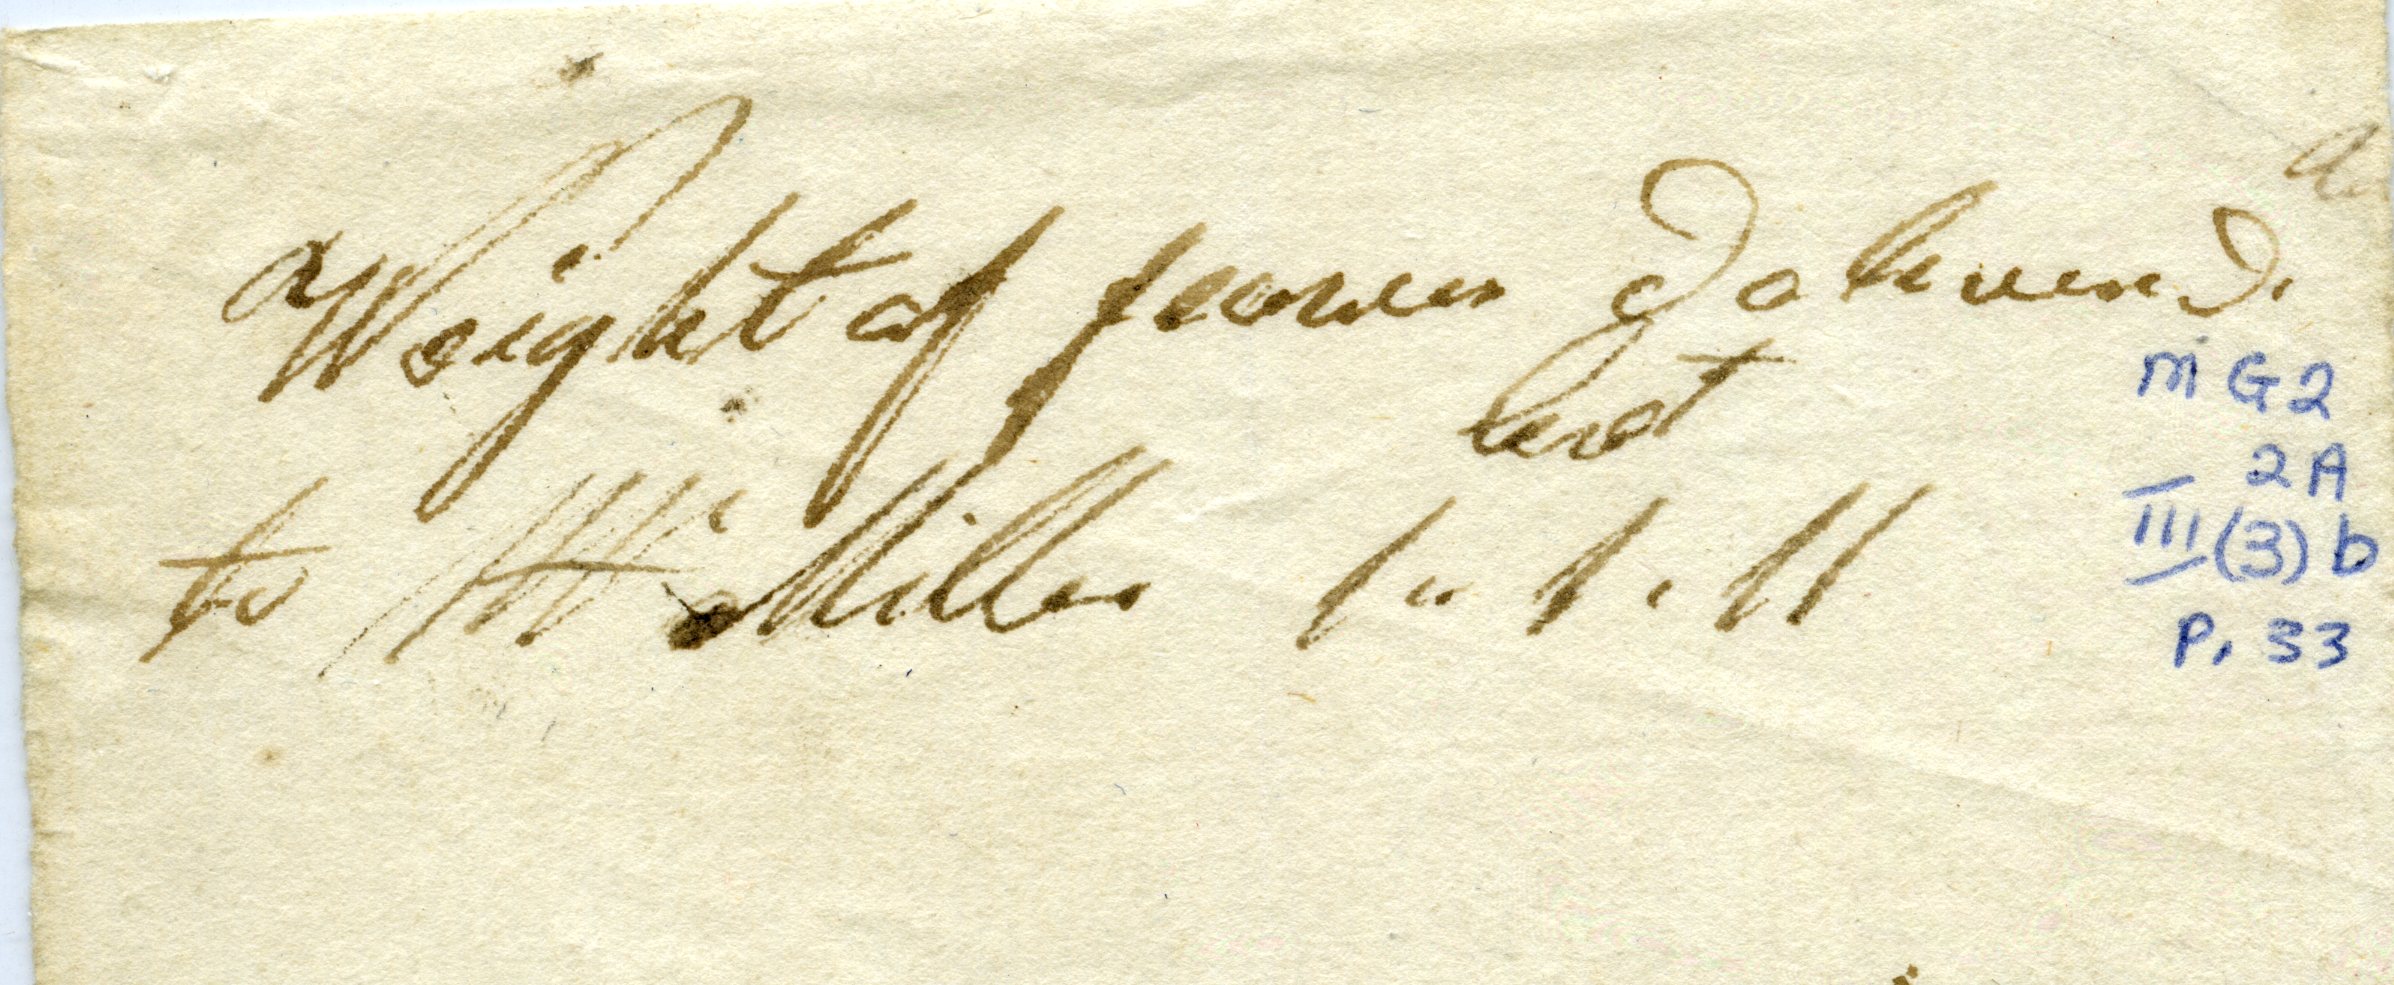 Weight of flower Delivered.
cwt
to Mr Miller 1 " 1 " 11
MG2
2A
III (3) b
P. 33